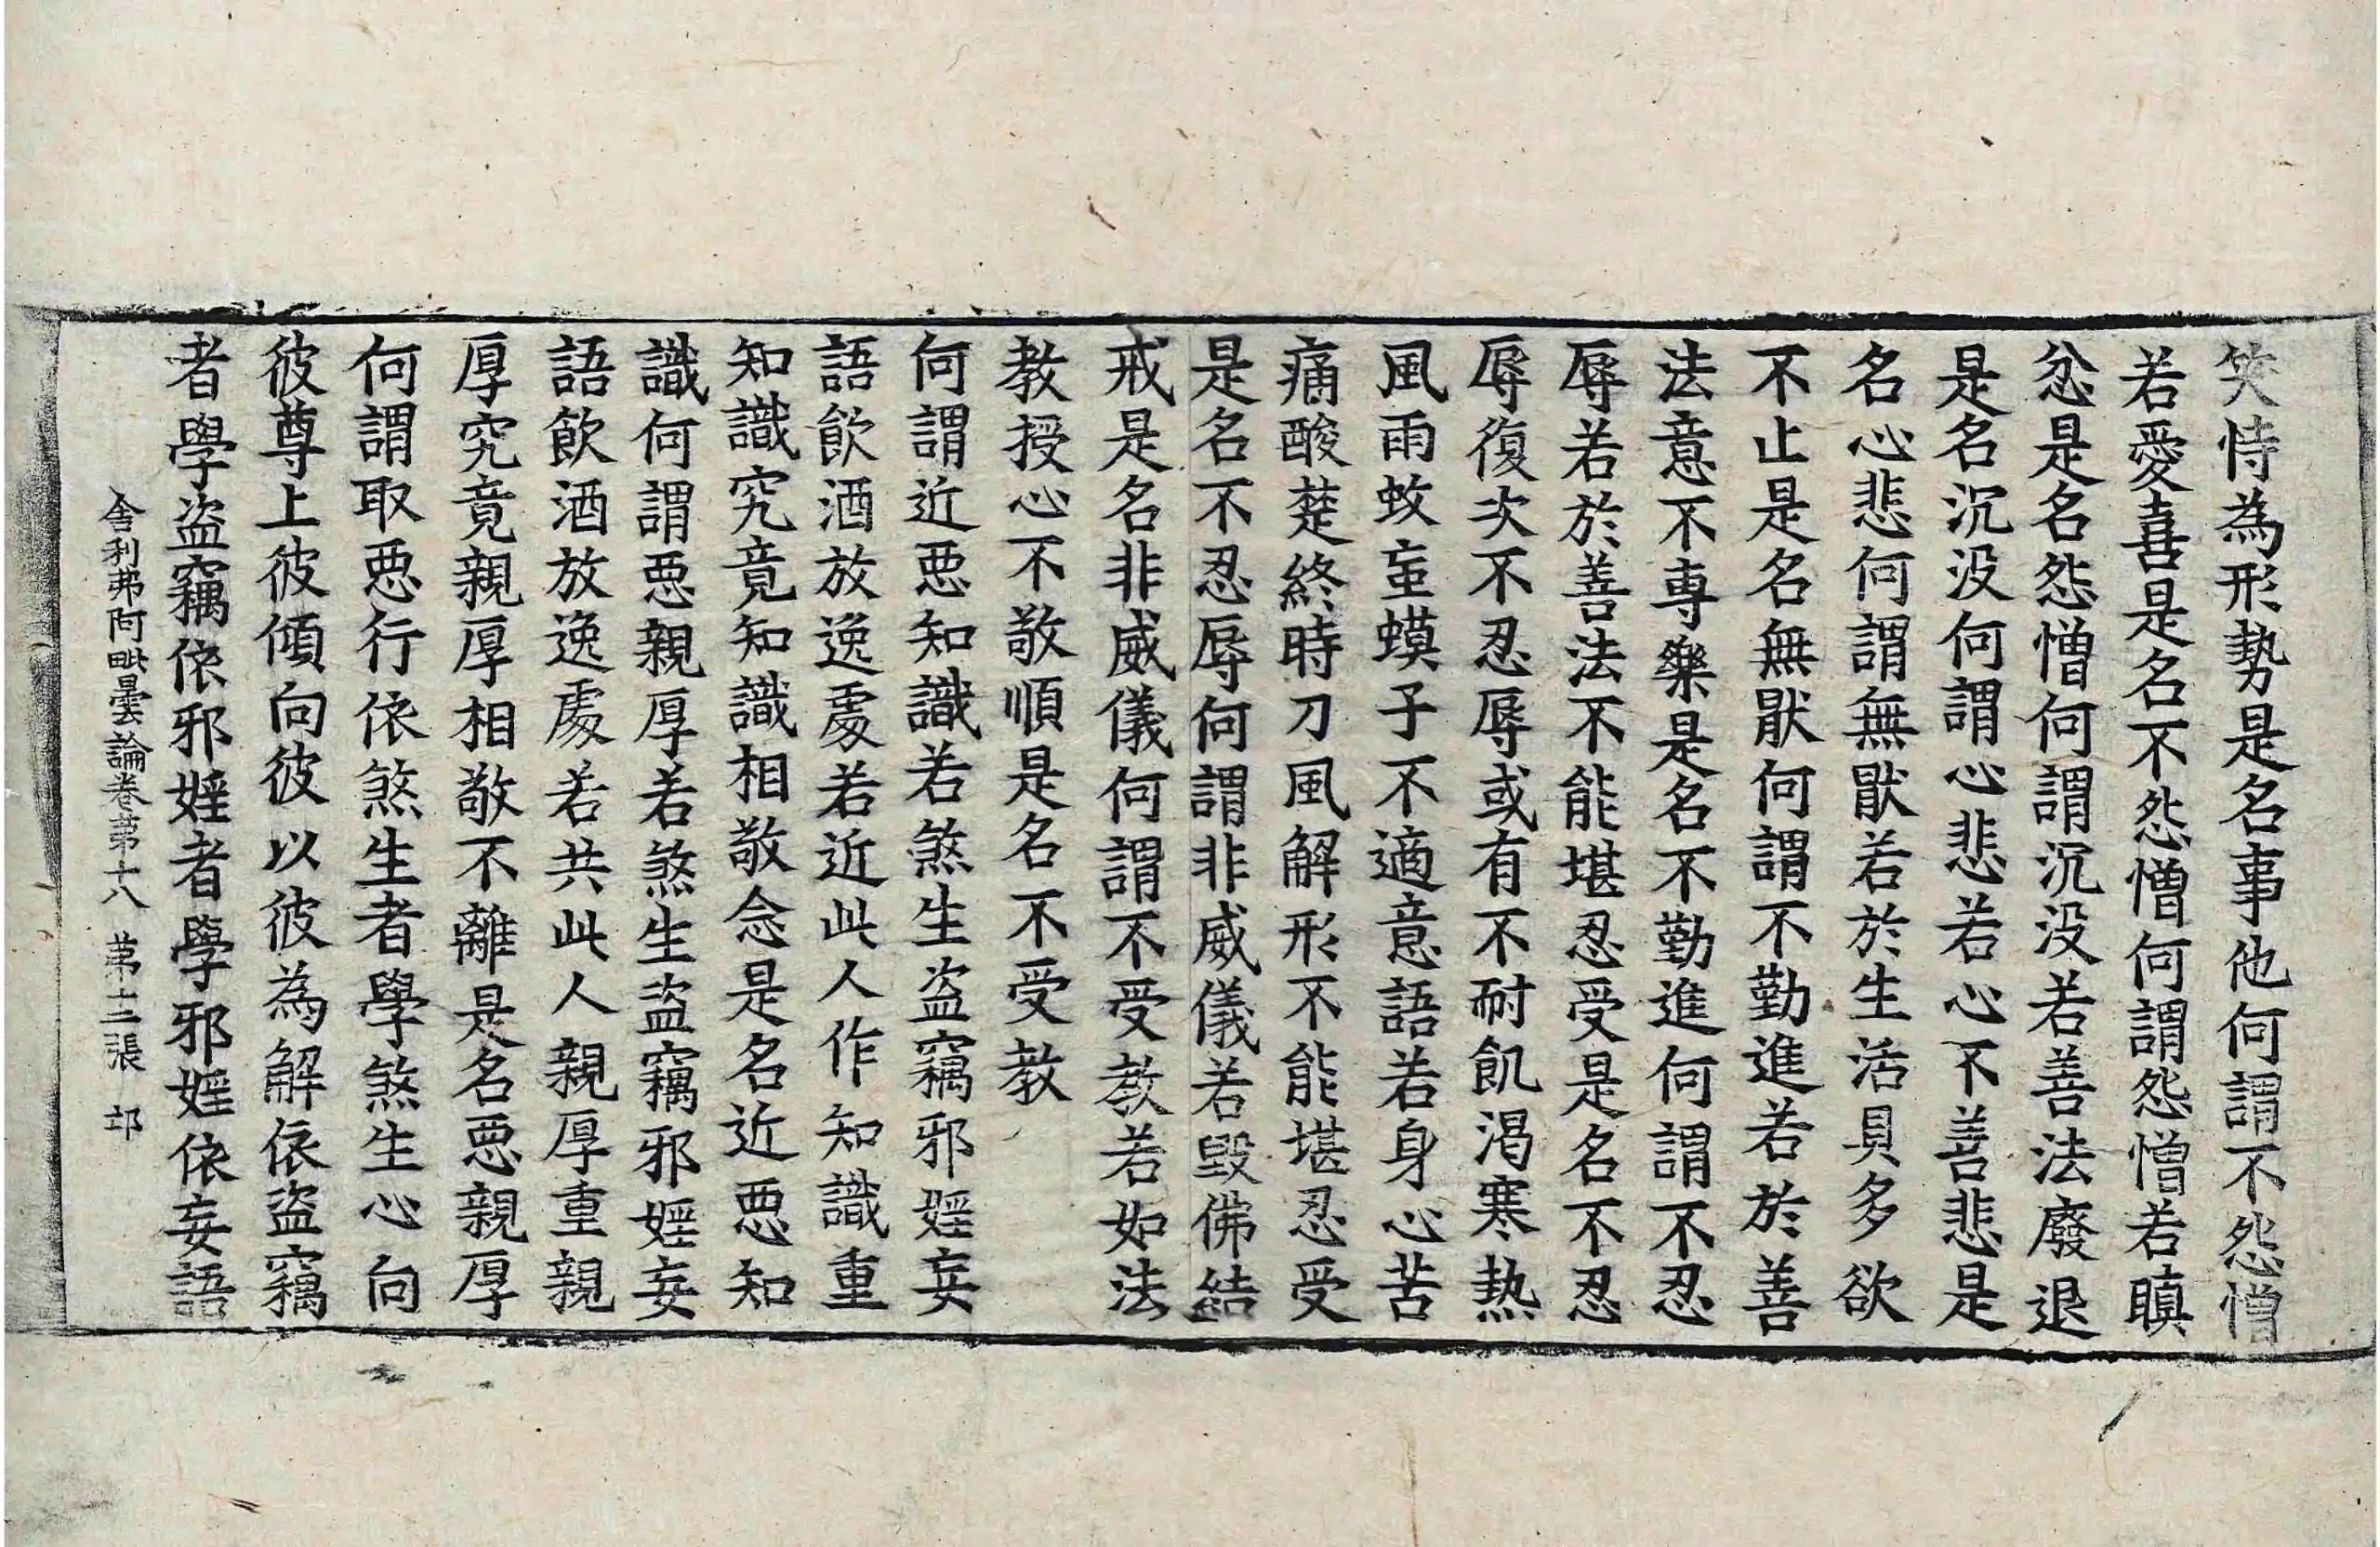 笑恃為形勢是名事他何謂不怨憎
若愛喜是名不怨憎何謂怨憎若瞋
忿是名怨憎何謂沉没若善法廢退
是名沉没何謂心悲若心不善悲是
名心悲何謂無猒若於生活具多欲
不止是名無猒何謂不勤進若於善
法意不専樂是名不勤進何謂不忍
辱若於善法不能堪忍受是名不忍
辱復次不忍辱或有不耐飢渴寒熱
風雨蚊䖟蟆子不適意語若身心苦
痛酸楚終時刀風解形不能堪忍受
是名不忍辱何謂非威儀若毀佛結
戒是名非威儀何謂不受教若如法
教授心不敬順是名不受教
何謂近惡知識若煞生盗竊邪婬妄
語飲酒放逸處若近此人作知識重
知識究竟知識相敬念是名近惡知
識何謂惡親厚若煞生盗竊邪婬妄
語飲酒放逸處若共此人親厚重親
厚究竟親厚相敬不離是名惡親厚
何謂取惡行依煞生者學煞生心向
彼尊上彼傾向彼以彼為解依盗竊
者學盗竊依邪婬者學邪婬依妄語
舎利弗阿毗曇論卷苐十八　苐十三張　卭